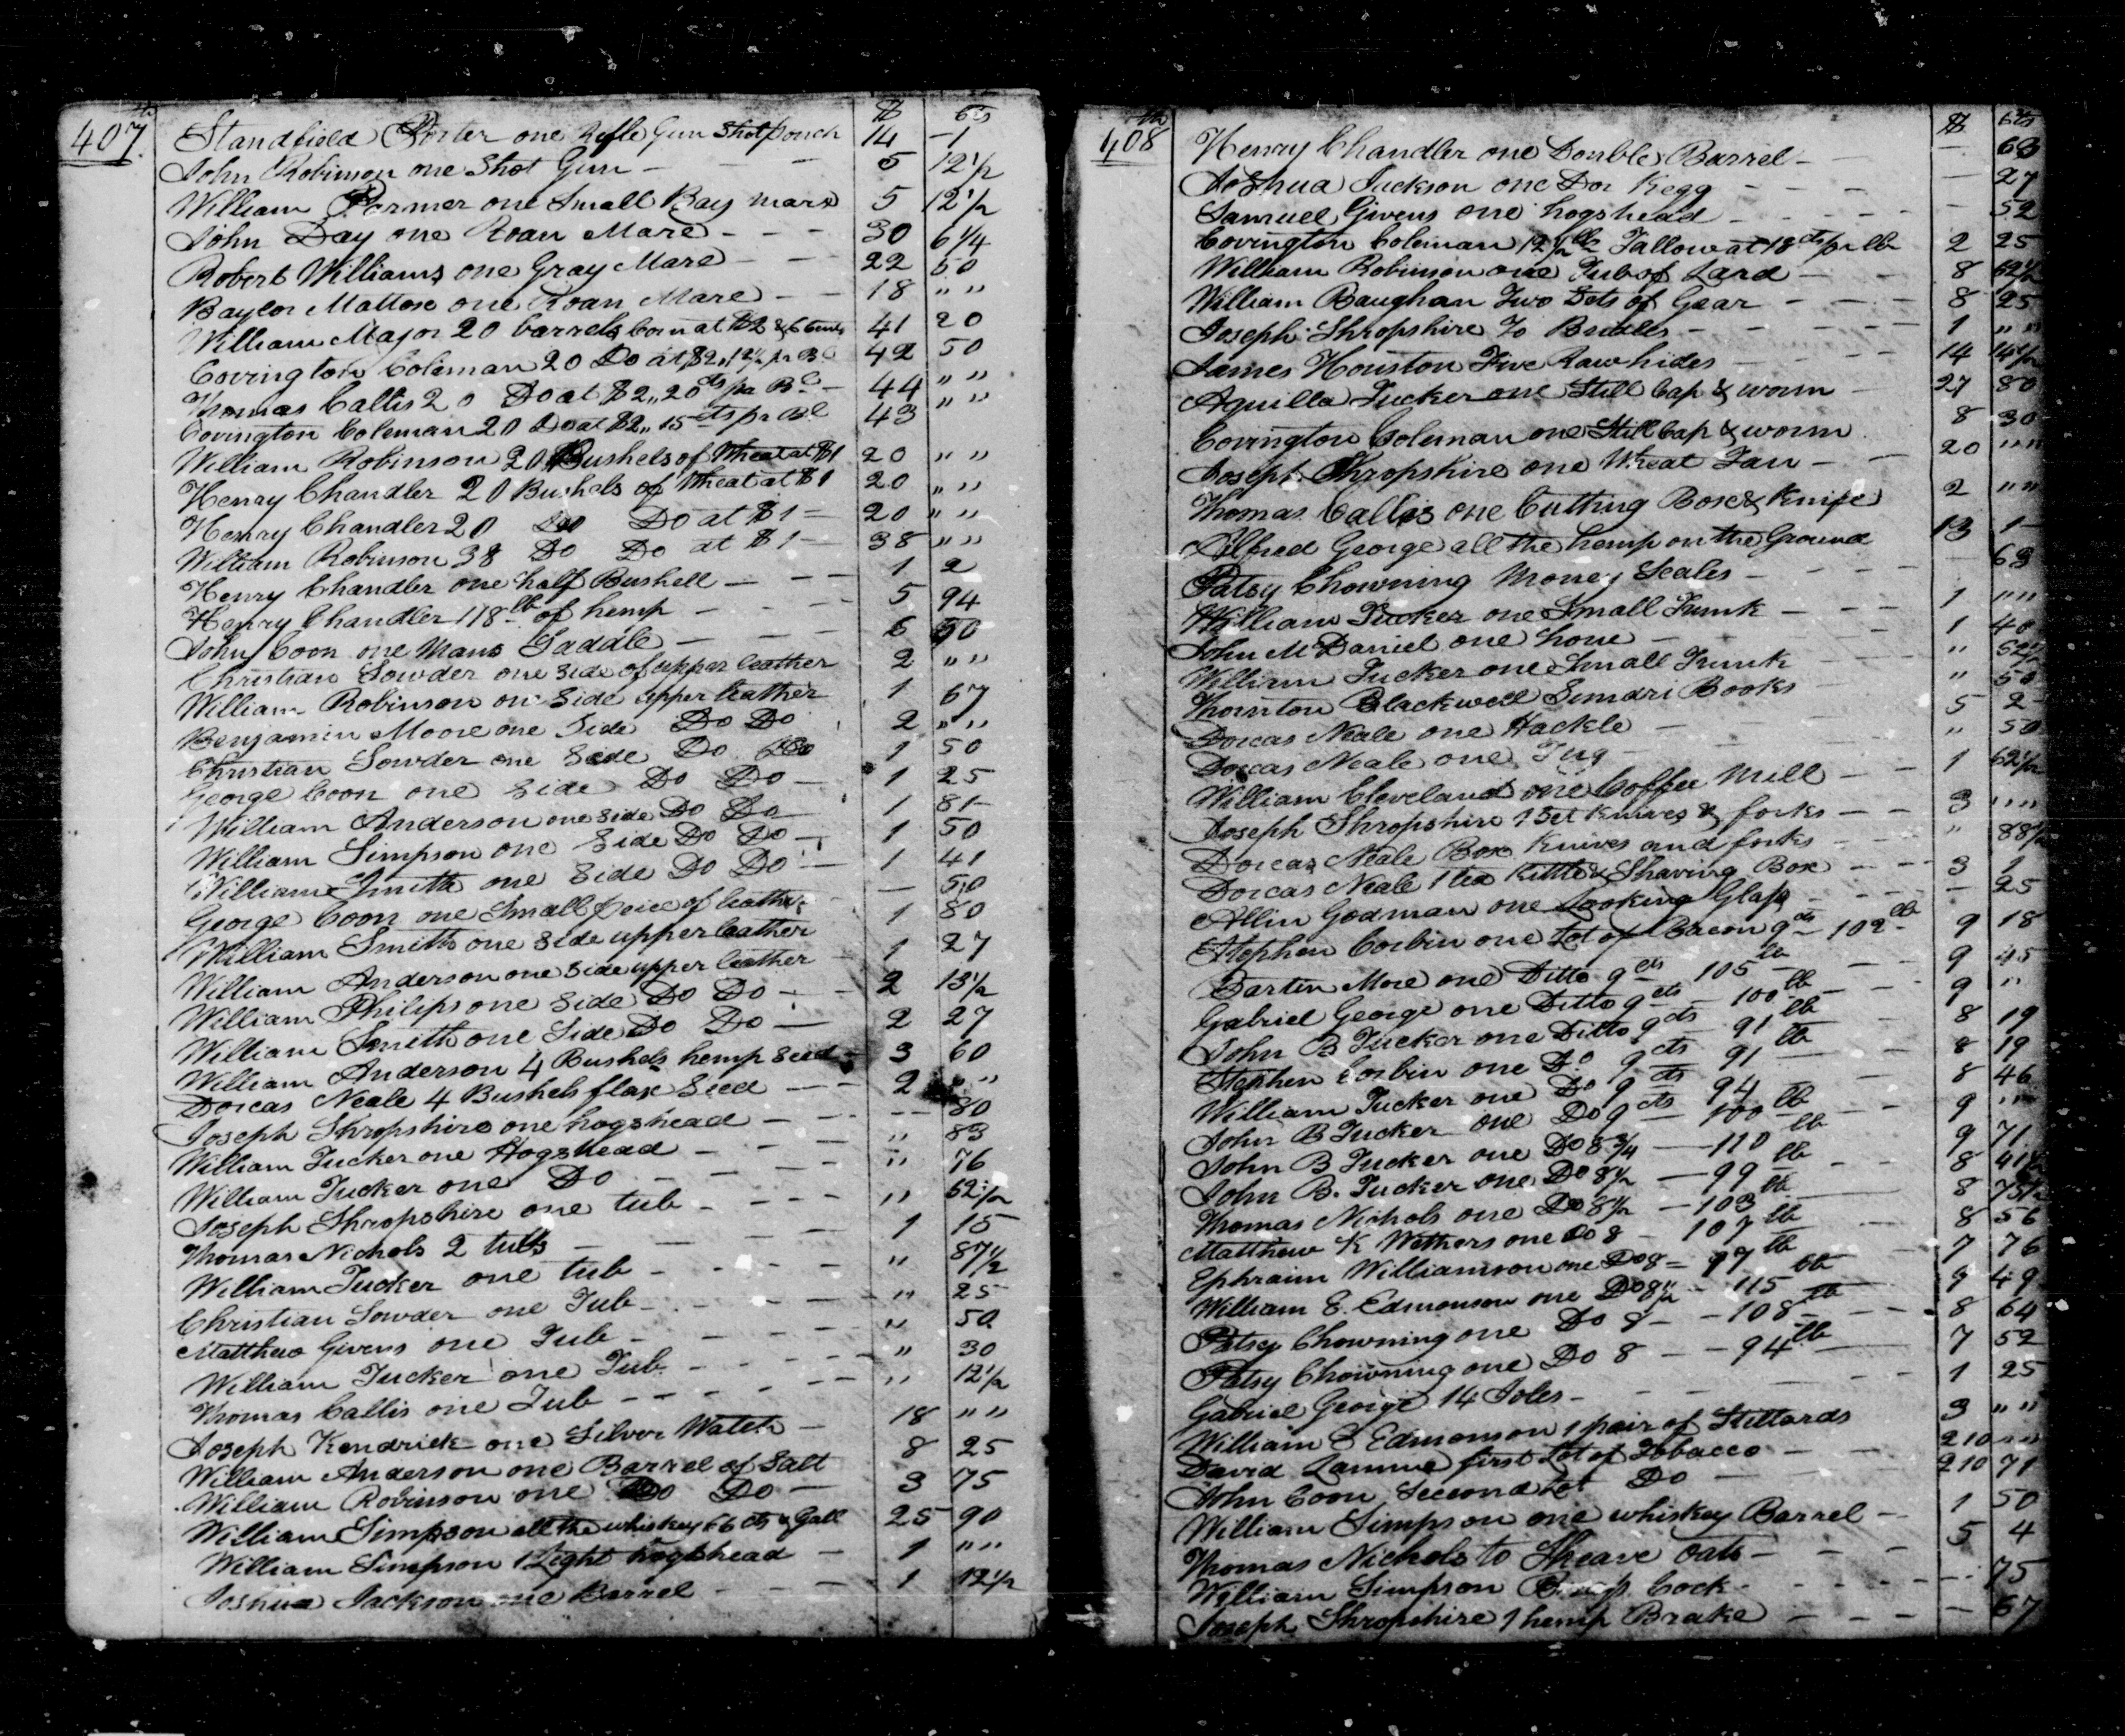 407th $ Cts
Standfield Porter one Rifle Gun Shot pouch 14 — 1
John Robinson one Shot Gun — 5 12½
William Farmer one Small Bay mare 5 12½
John Day one Roan Mare - - - 30 6¼
Robert Williams one Gray Mare — 22 50
Baylor Mattox one Roan Mare - — 18 " "
William Major 20 barrels Corn at $2 & 6 Cents 41 20
Covington Coleman 20 Do at $2,,12½ pr Bl 42 50
Thomas Callis 20 Do at $2,,20 cts pr Bl — 44 " "
Covington Coleman 20 Do at $2,,15 cts pr Bl 43 " "
William Robinson 20 Bushels of Wheat at $1 20 " "
Henry Chandler 20 Bushels of Wheat at $1 20 " "
Henry Chandler 20 Do Do at $1 — 20 " "
William Robinson 38 Do Do at $1 — 38 " "
Henry Chandler one half Bushell — - - 1 2
Henry Chandler 118 lb of hemp — 5 94
John Coon one Mans Saddle — 6 50
Christian Sowder one Side of upper leather 2 " "
William Robinson one Side upper leather 1 67
Benjamin Moore one Side Do Do 2 " "
Christian Sowder one Side Do Do 1 50
George Coon one Side Do Do — 1 25
William Anderson one Side Do Do 1 81
William Simpson one Side Do Do — 1 50
William Smith one Side Do Do — 1 41
George Coon one Small peice of leather — 50
William Smith one Side upper leather 1 80
William Anderson one Side upper leather 1 27
William Philips one Side Do Do — 2 13½
William Smith one Side Do Do — 2 27
William Anderson 4 Bushels hemp Seed 3 60
Dorcas Neale 4 Bushels flax Seed — 2 " "
Joseph Shropshire one hogshead — -- 80
William Tucker one Hogshead - - " 83
William Tucker one Do — " 76
Joseph Shropshire one tub - - - " 62½
Thomas Nichols 2 tubs — 1 15
William Tucker one tub - - - " 87½
Christian Sowder one Tub - - " 25
Matthew Givens one Tub - - - " 50
William Tucker one Tub - - - " 30
Thomas Callis one Tub - - - " 12½
Joseph Kendrick one Silver Watch — 18 " "
William Anderson one Barrel of Salt 8 25
William Robinson one Do Do — 3 75
William Simpson all the whiskey 66 cts Gall 25 90
William Simpson 1 Tight hogshead — 1 " "
Joshua Jackson one Barrel - - - 1 12½
408th $ Cts
Henry Chandler one Double Barrel - — 63
Joshua Jackson one Do Kegg - - - — 27
Samuel Givens one hogshead - - - — 52
Covington Coleman 12½ lb Tallow at 18 cts pr lb 2 25
William Robinson one Tub of Lard — 8 62½
William Baughan Two Sets of Gear - - 8 25
Joseph Shropshire To Bridles - - - 1 " "
James Houston Five Raw hides — 14 14½
Aquilla Tucker one Still Cap & worm - 27 80
Covington Coleman one Still Cap & worm 8 30
Joseph Shropshire one Wheat Fan — 20 " "
Thomas Callis one Cutting Box & Knife 2 " "
Alfred George all the hemp on the Ground 13 1
Patsy Chowning Money Scales - - - 63
William Tucker one Small Trunk — 1 " "
John McDaniel one hone — 1 40
William Tucker one Small Trunk — " 62½
Thornton Blackwell Sundri Books " 50
Dorcas Neale one Hackle — 5 2
Dorcas Neale one Jug — " 50
William Cleveland one Coffee Mill - 1 62½
Joseph Shropshire 1 Set knives & forks — 3 " "
Dorcas Neale Box Knives and forks — " 88½
Dorcas Neale 1 tea Kittle & Shaving Box — 3 1
Allin Godman one Looking Glass - - — 25
Stephen Corbin one Lot of Bacon 9 cts 102 lb 9 18
Bartin More one Ditto 9 cts 105 lb 9 45
Gabriel George one Ditto 9 cts 100 lb 9 "
John B Tucker one Ditto 9 cts 91 lb 8 19
Stephen Corbin one Do 9 cts 91 lb 8 19
William Tucker one Do 9 cts 94 8 46
John B Tucker one Do 9 cts 100 lb 9 " "
John B Tucker one Do 8¾ — 110 lb 9 71
John B. Tucker one Do 8½ — 99 lb 8 41½
Thomas Nichols one Do 8½ — 103 lb 8 75½
Matthew K Withers one Do 8 - 107 lb 8 56
Ephraim Williamson one Do 8 — 97 lb 7 76
William E. Edmonson one Do 8¼ - 115 lb 9 49
Patsy Chowning one Do 8 - - 108 lb 8 64
Patsy Chowning one Do 8 - - 94 lb 7 52
Gabriel George 14 Joles - - - 1 25
William E Edmonson 1 pair of Stillards 3 " "
David Lamme first Lot of Tobacco — 210 " "
John Coon Second Lot Do — 210 71
William Simpson one whiskey Barrel - 1 50
Thomas Nichols to Sheave oats - - 5 4
William Simpson Cock - - - 75
Joseph Shropshire 1 hemp Brake - - - — 67